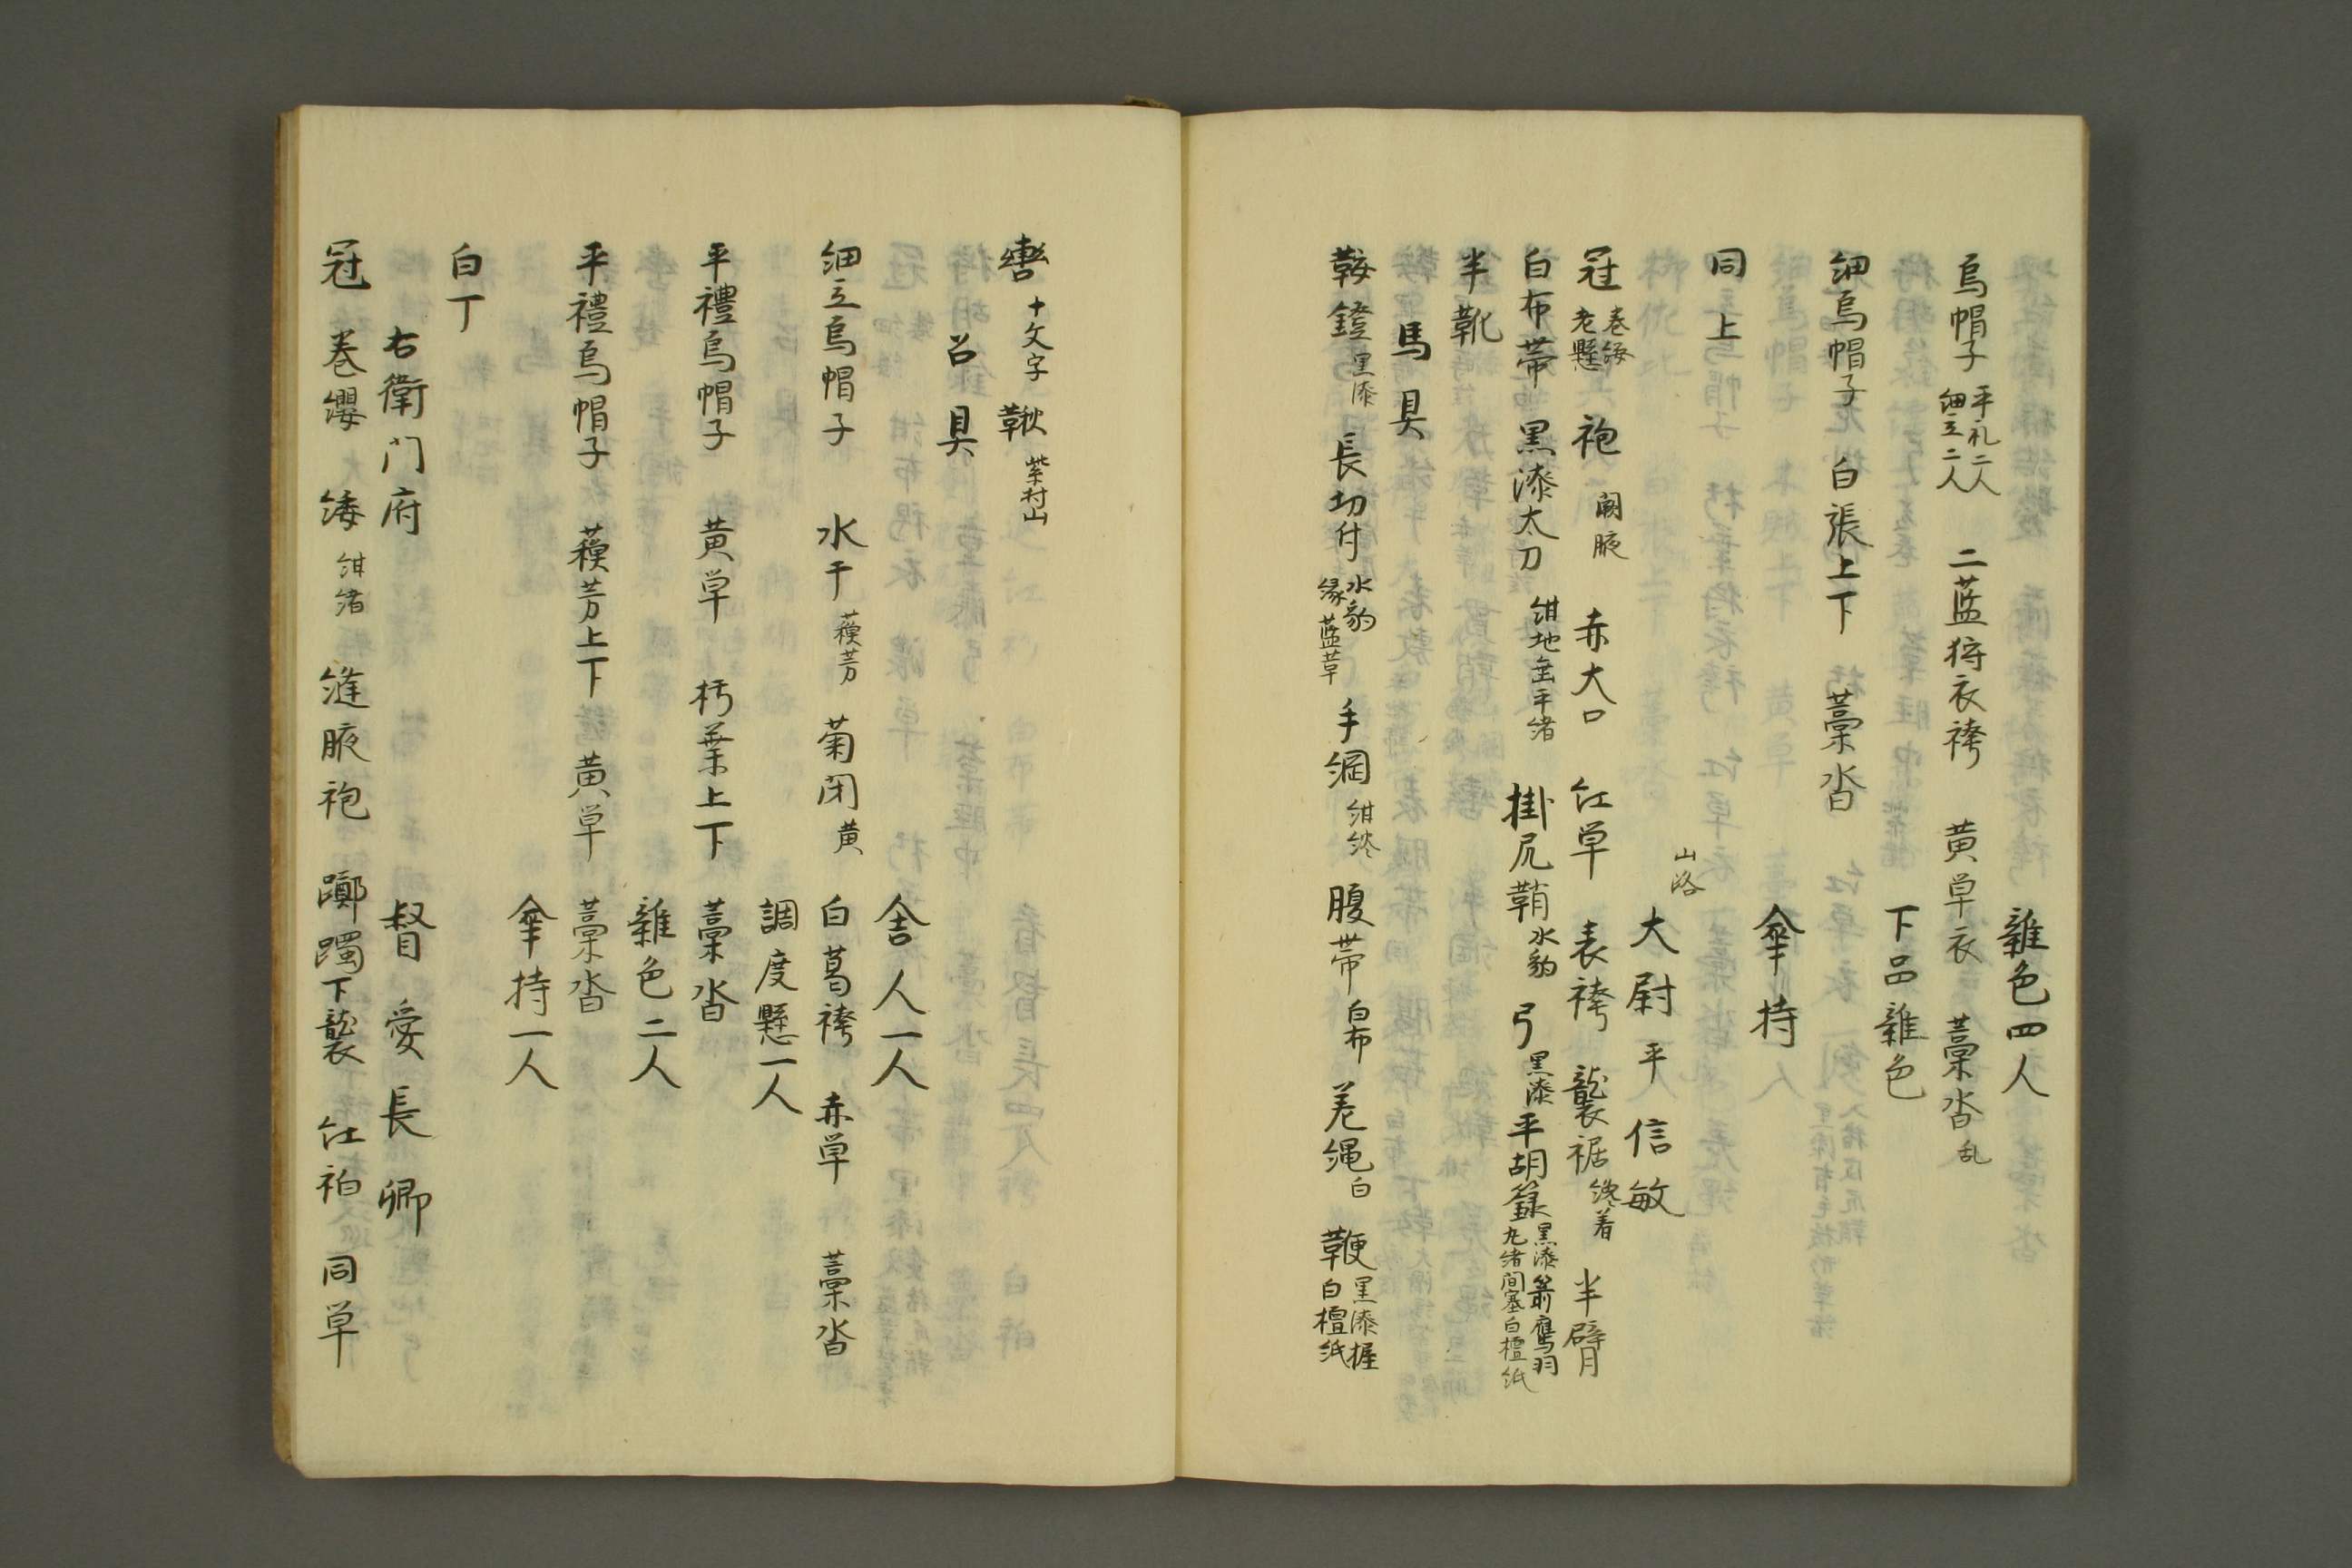 雜色四人
烏帽子 平礼二人 細立二人 二藍狩衣袴 黄単衣 藁沓 乱
下品雜色
細烏帽子 白張上下 藁沓
傘持
同上
山路
大尉平信敏
冠 巻纓 老懸 袍 闕腋 赤大口 紅単 表袴 襲裾 着 半臂
白布帯 黒漆太刀 紺地平緒 掛尻鞘 水豹 弓 黒漆 平胡籙 黒漆箭鷹羽 丸緒間塞白檀紙
半靴
馬具
鞍鐙 黒漆 長切付 水豹 縁藍革 手綱 紺 腹帯 白布 差縄 白 鞭 黒漆握 白檀紙
轡 十文字 鞦 紫村山
召具
舎人一人
細立烏帽子 水干 蘓芳 菊閉 黄 白葛袴 赤単 藁沓
調度懸一人
平禮烏帽子 黄単 朽葉上下 藁沓
雜色二人
平禮烏帽子 蘓芳上下 黄単 藁沓
傘持一人
白丁
右衛门府 督 愛長卿
冠 巻纓 緌 紺緒 縫腋袍 躑躅下襲 紅袙 同単